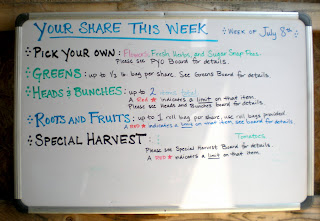 YOUR SHARE THIS WEEK
WEEK OF July 8th
PICK YOUR OWN: Flowers, Fresh Herbs, and Sugar Snap Peas.
Please see PYO Board for details.
GREENS: up to 1/2 lb. bag per share. See Greens Board for details.
HEADS & BUNCHES: up to 2 items total
A Red * indicates a limit on that item.
Please see Heads and Bunches board for details.
ROOTS AND FRUITS: up to 1 roll bag per share, use roll bags provided.
A Red * indicates a limit on that item, see board for details
SPECIAL HARVEST: Tomatoes
Please see Special Harvest Board for details.
A Red * indicates a limit on that item.